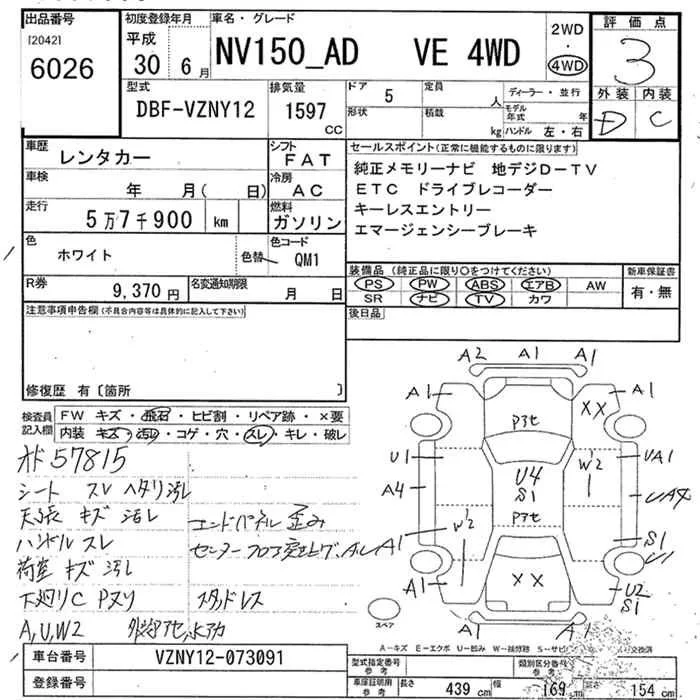 出品番号 初度登録年月 車名・グレード 2WD 評価点
[2042] 平成 ・ 3
6026 30 6月 NV150_AD VE 4WD 4WD
型式 排気量 ドア 5 定員 人 ディーラー・並行 外装 内装
DBF-VZNY12 1597 cc 形状 積載 kg モデル年式 年 D C
ハンドル 左・右
車歴 レンタカー シフト FAT セールスポイント(正常に機能するものに限ります)
車検 年 月( 日) 冷房 AC 純正メモリーナビ 地デジD-TV
走行 5万7千900 km 燃料 ガソリン ETC ドライブレコーダー
色 ホワイト 色替 色コード QM1 キーレスエントリー
エマージェンシーブレーキ
R券 9,370円 名変通知期限 月 日 装備品(純正品に限り○をつけてください) 新車保証書
PS PW ABS エアB AW 有・無
SR ナビ TV カワ
注意事項申告欄(不具合内容等は具体的に記入して下さい) 後日品
修復歴 有〔箇所 〕
検査員記入欄 FW キズ・飛石・ヒビ割・リペア跡・×要
内装 キズ・汚レ・コゲ・穴・スレ・キレ・破レ
オド 57815
シート スレ ヘタリ 汚レ
天張 キズ 汚レ エンドパネル 歪み
ハンドル スレ センターフロア突上ゲ、A1
荷室 キズ 汚レ
下廻りC Pヌリ スタッドレス
A,U,W2
A2 A1 A1
A1 A1
XX
P3セ
U1 W2 UA1
U4
A4 S1 UA4
P3セ
A1 W2 S1
U1
A1 XX U2
S1
A1 A1
スペア
A-キズ E-エクボ U-凹み W-補修跡 S-サビ
車台番号 VZNY12-073091 型式指定番号 参考 類別区分番号 参考
登録番号 車庫証明用 参考 長さ 439 cm 幅 169 cm 高さ 154 cm